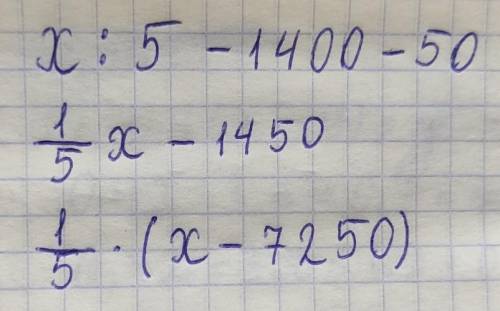 x : 5 - 1400 - 50
1/5 x - 1450
1/5 · (x - 7250)